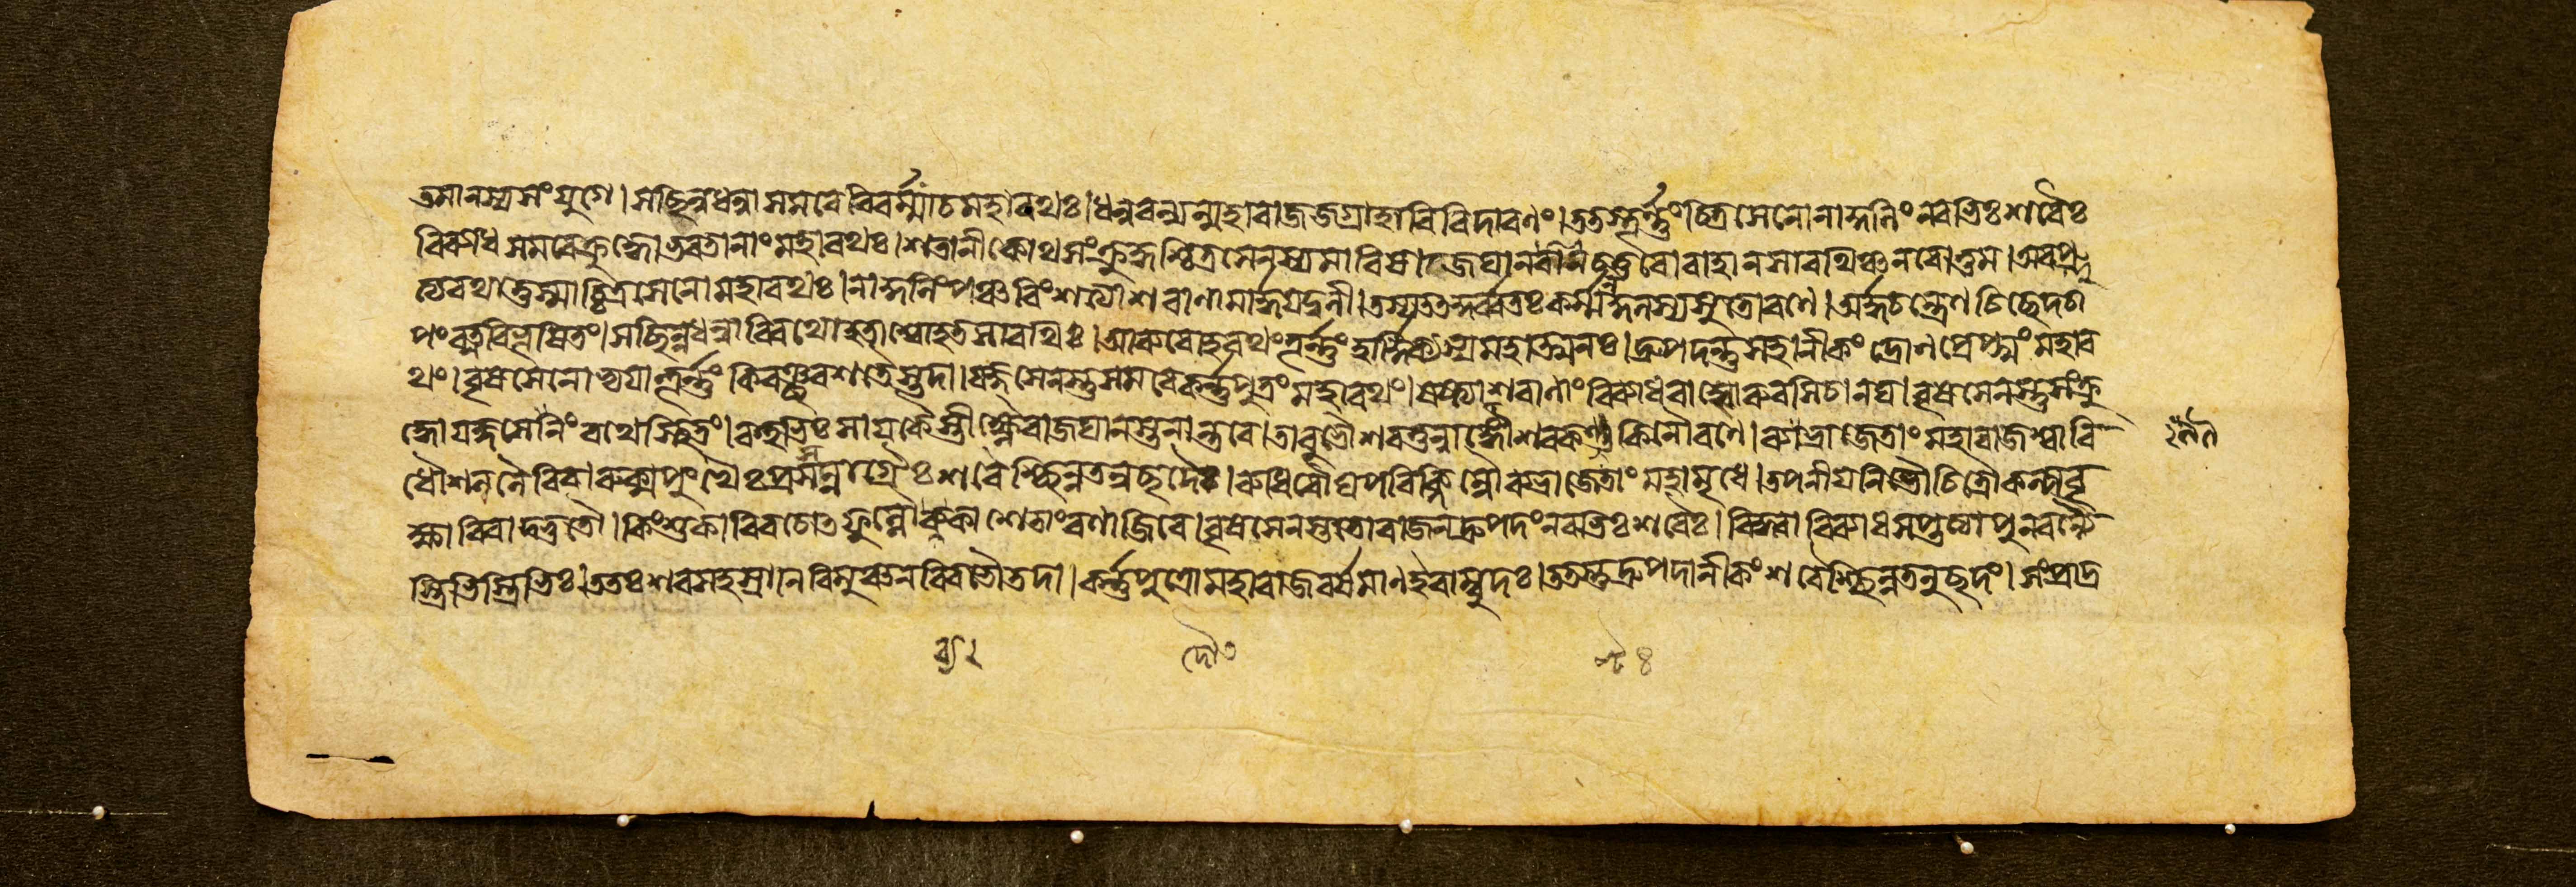 তমানস্য সংযুগে। সছিন্নধন্বা সমরে বিবর্ম্মা চ মহারথঃ। ধনুরন্যন্মহারাজ জগ্রাহারিবিদারণং। ততস্তূর্ণ্ণং চিত্রসেনো নাকুলিং নবভিঃ শরৈঃ
বিব্যাধ সমরে ক্রুদ্ধো ভরতানাং মহারথঃ। শতানীকোথ সংক্রুদ্ধশ্চিত্রসেনস্য মারিষ। জঘান চতুরো বাহান্ সারথিঞ্চ নরোত্তম। অবপ্লু
ত্য রথাত্তস্মাচ্চিত্রসেনো মহারথঃ। নাকুলিং পঞ্চবিংশত্যা শরাণামার্দ্দয়দ্বলী। তস্য তৎ কুর্ব্বতঃ কর্ম্ম নকুলস্য সুতো রণে। অর্দ্ধচন্দ্রেণ চিচ্ছেদ চা
পং রত্নবিভূষিতং। সছিন্নধন্বা বিরথো হতাশ্বো হতসারথিঃ। আরুরোহ রথং তূর্ণ্ণং হার্দ্দিক্যস্য মহাত্মনঃ। দ্রুপদন্তু সহানীকং দ্রোণপ্রেপ্সুং মহার
থং। বৃষসেনোভ্যয়াত্তূর্ণ্ণং কিরঞ্ছরশতৈস্তদা। যজ্ঞসেনস্তু সমরে কর্ণ্ণপুত্রং মহারথং। ষষ্ঠ্যা শরাণাং বিব্যাধ বাহ্বোরুরসি চানঘ। বৃষসেনস্তু সংক্রু
দ্ধো যজ্ঞসেনিং রথে স্থিতং। বহুভিঃ সায়কৈস্তীক্ষ্ণৈরাজঘান স্তনান্তরে। তাবুভৌ শরনুন্নাঙ্গৌ শরকণ্টকিনৌ রণে। ব্যভ্রাজেতাং মহারাজ শ্বাবি
ধৌ শললৈরিব। রুক্মপুংখৈঃ প্রসন্নাগ্রৈঃ শরৈশ্ছিন্নতনুছদৌ। রুধিরৌঘপরিক্লিন্নৌ ব্যভ্রাজেতাং মহামৃধে। তপনীয়নিভৌ চিত্রৌ কল্পবৃ
ক্ষাবিবাদ্ভুতৌ। কিংশুকাবিব চোৎফুল্লৌ চকাশেতাং রণাজিরে। বৃষসেনস্ততো রাজন্ দ্রুপদং নবভিঃ শরৈঃ। বিদ্ধ্বা বিব্যাধ সপ্তত্যা পুনরন্যৈ
স্ত্রিভিস্ত্রিভিঃ। ততঃ শরসহস্রাণি বিমুঞ্চন্ বিবভৌ তদা। কর্ণ্ণপুত্রো মহারাজ বর্ষমাণ ইবাম্বুদঃ। ততস্তু দ্রুপদানীকং শরৈশ্ছিন্নতনুছদং। সংপ্রাদ্র